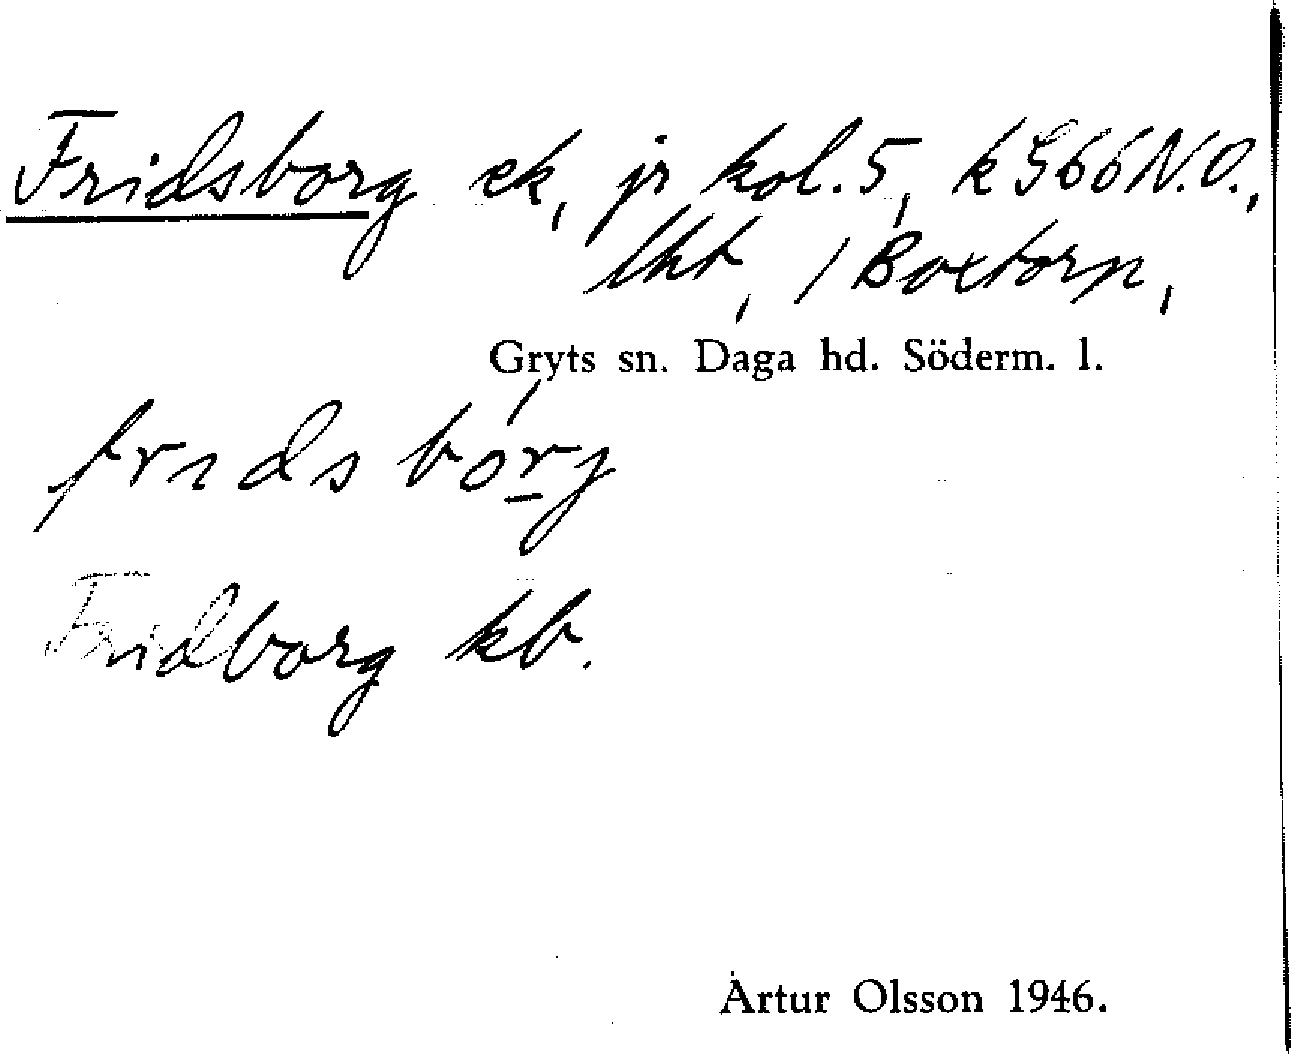 Fridsborg ek, jr kol. 5, k 566 N.O.,
lht, / Boxtorp,
Gryts sn. Daga hd. Söderm. l.
Fridborg kb.
Artur Olsson 1946.